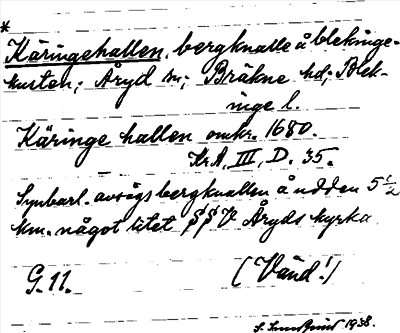 *
Käringehallen, bergknalle å blekinge-
kusten; Åryd sn; Bräkne hd; Blek-
inge l.
Käringe hallen omkr. 1680.
KrA, III, D. 35.
Synbarl. avsågs bergknallen å udden 5 1/2
km. något litet SSV Åryds kyrka.
G. 11. (Vänd!)
1938.